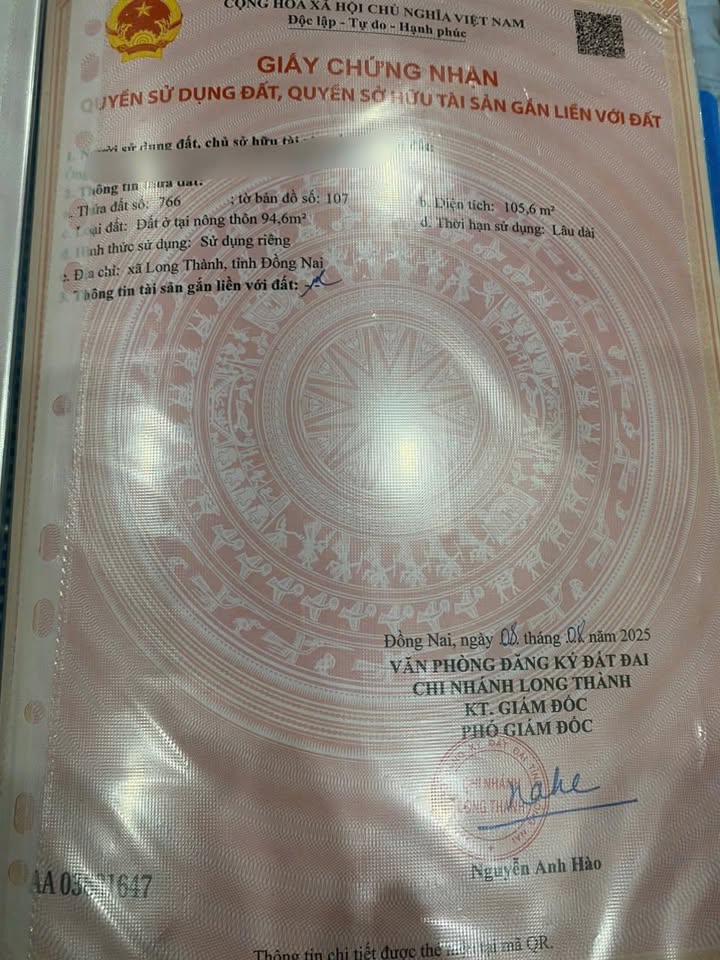 CỘNG HÒA XÃ HỘI CHỦ NGHĨA VIỆT NAM
Độc lập - Tự do - Hạnh phúc
GIẤY CHỨNG NHẬN
QUYỀN SỬ DỤNG ĐẤT, QUYỀN SỞ HỮU TÀI SẢN GẮN LIỀN VỚI ĐẤT
sử dụng đất, chủ sở hữu tài
2. Thông tin thửa đất:
Thửa đất số: 766 ; tờ bản đồ số: 107 b. Diện tích: 105,6 m²
Loại đất: Đất ở tại nông thôn 94,6m² d. Thời hạn sử dụng: Lâu dài
Hình thức sử dụng: Sử dụng riêng
Địa chỉ: xã Long Thành, tỉnh Đồng Nai
3. Thông tin tài sản gắn liền với đất: -/-
Đồng Nai, ngày 08 tháng 08 năm 2025
VĂN PHÒNG ĐĂNG KÝ ĐẤT ĐAI
CHI NHÁNH LONG THÀNH
KT. GIÁM ĐỐC
PHÓ GIÁM ĐỐC
CHI NHÁNH
LONG THÀNH
Nguyễn Anh Hào
1647
Thông tin chi tiết được thể hiện tại mã QR.